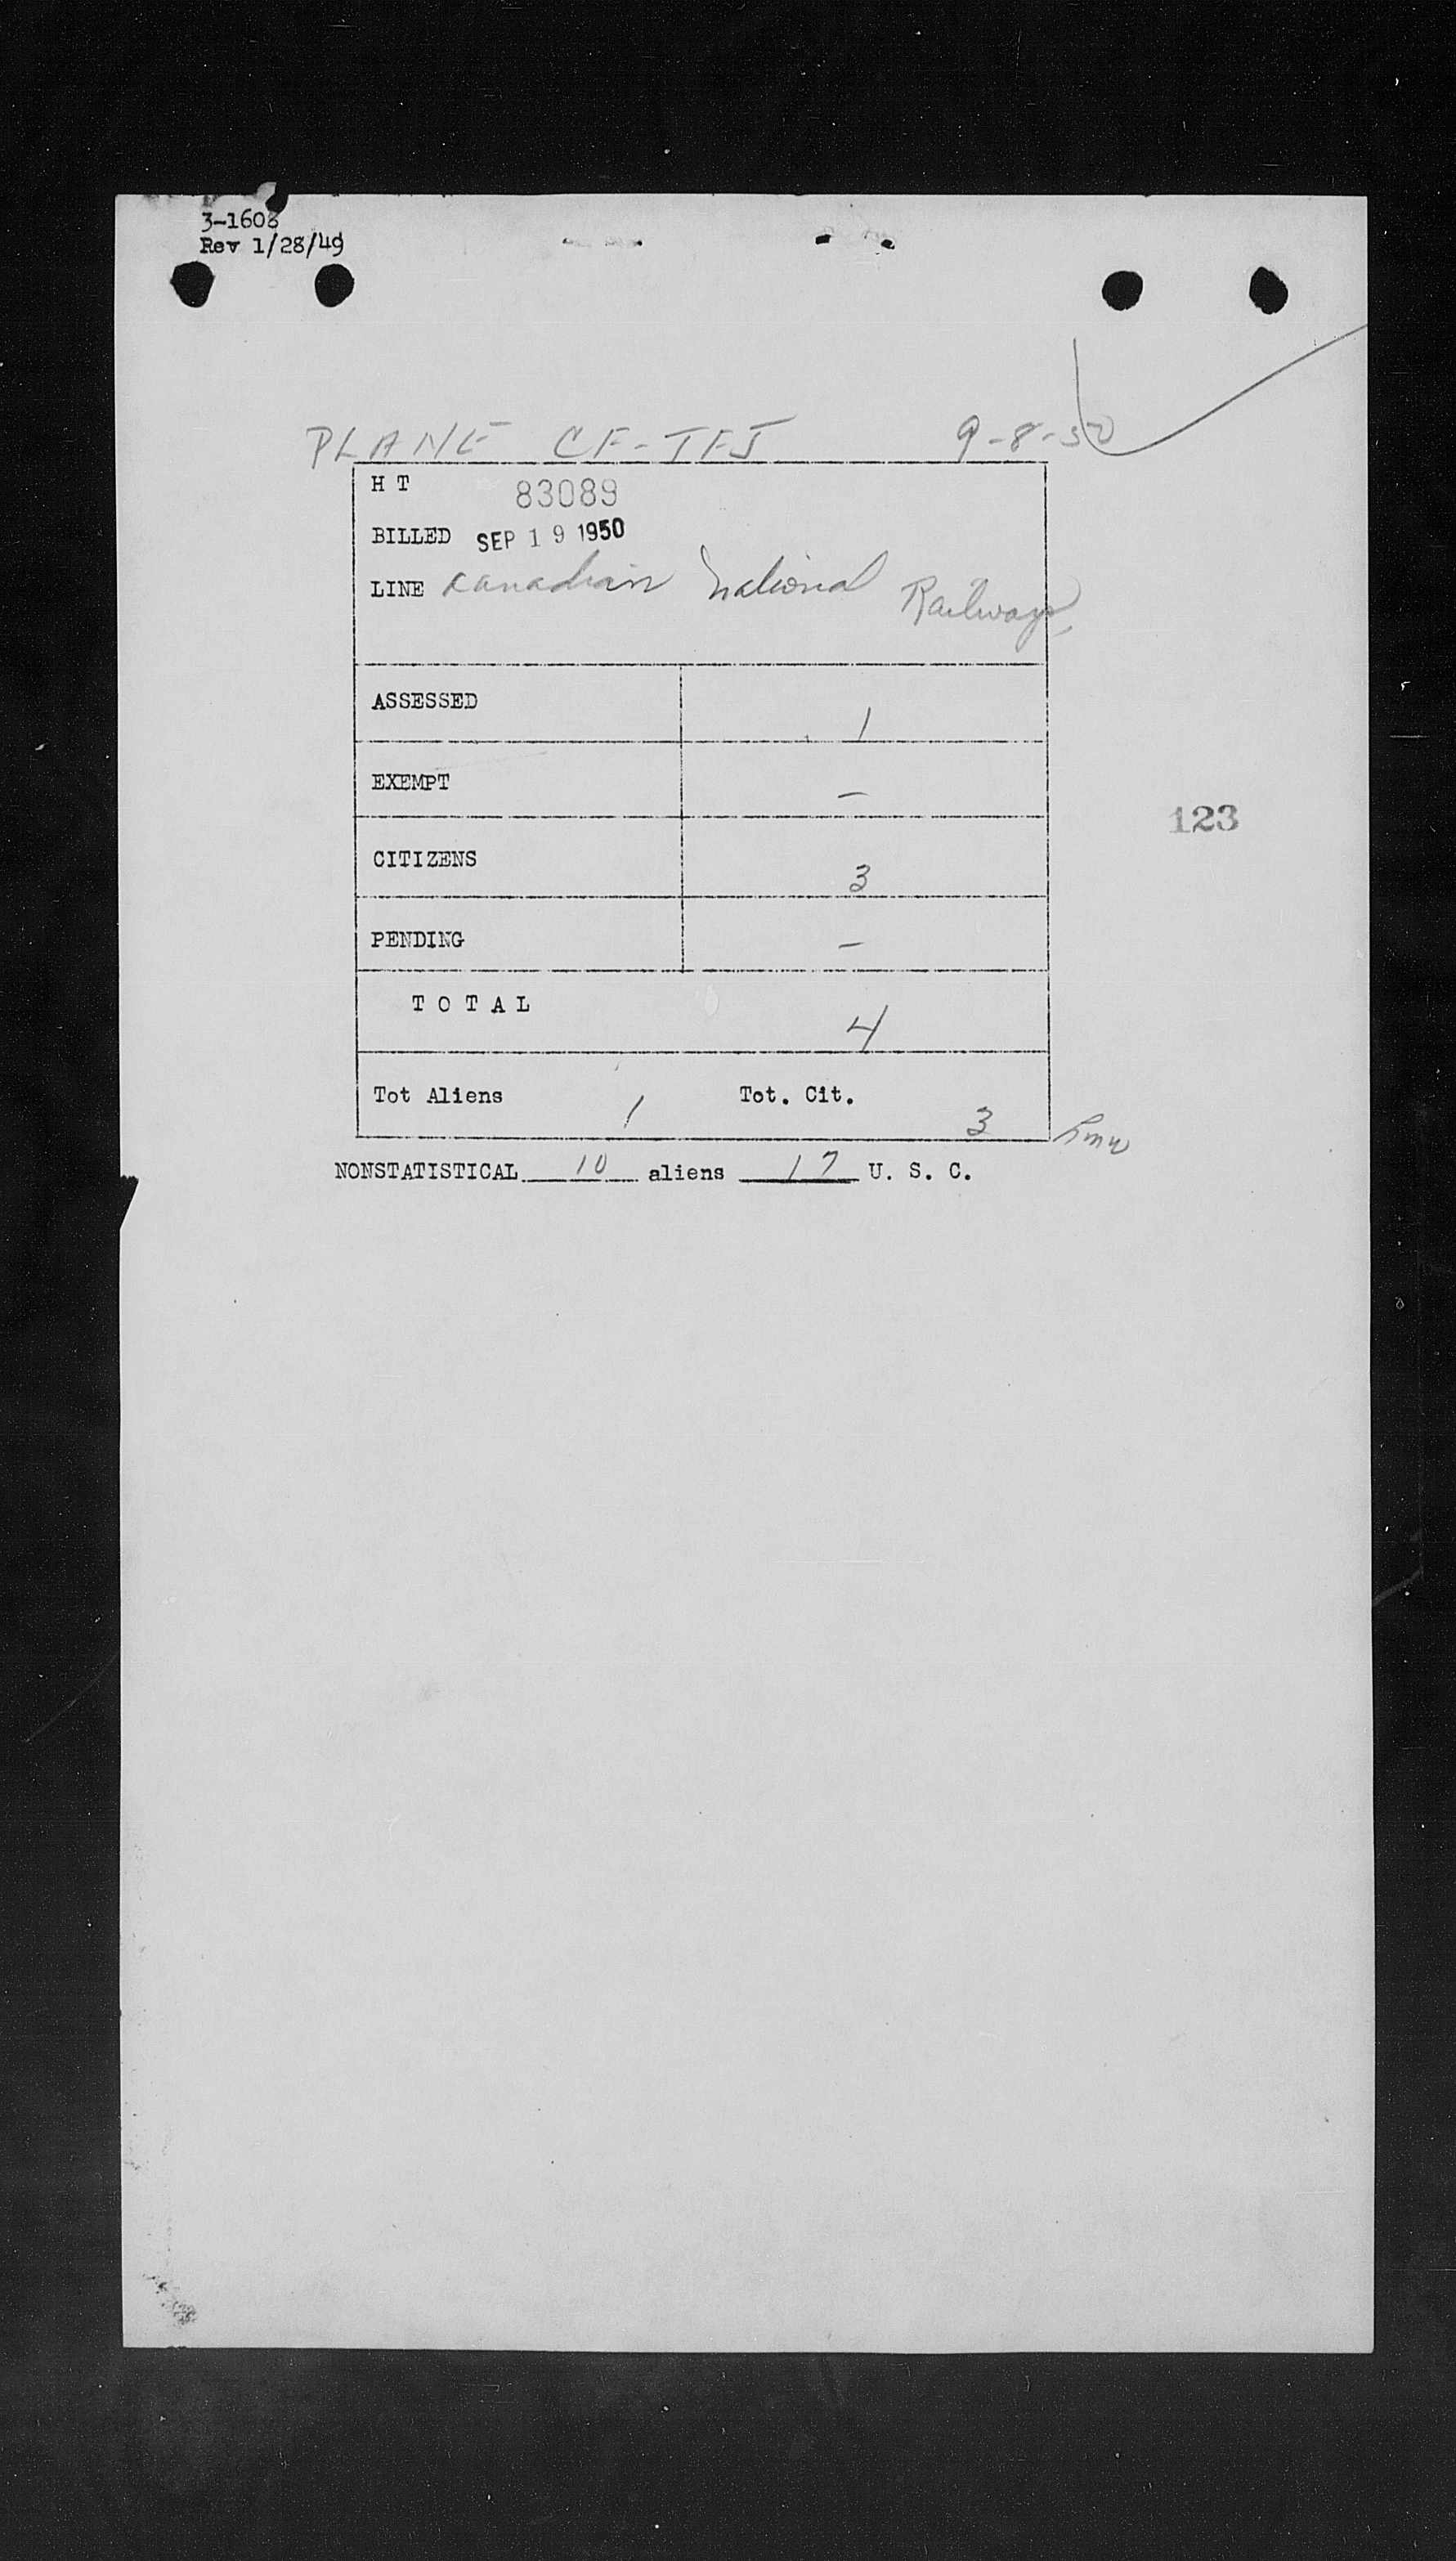 3-1608
Rev 1/28/49
PLANE CF-TFJ 9-8-50
H T 83089
BILLED SEP 19 1950
LINE Canadian National Railways
ASSESSED 1
EXEMPT –
123
CITIZENS 3
PENDING –
T O T A L 4
Tot Aliens 1 Tot. Cit. 3
NONSTATISTICAL 10 aliens 17 U. S. C.